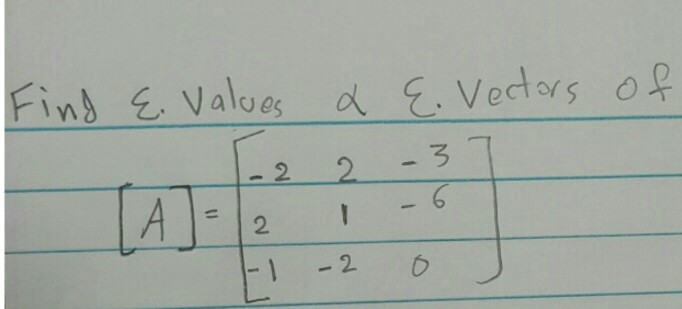 Find Ɛ. Values & Ɛ. Vectors of
[A] = [-2 2 -3
2 1 -6
-1 -2 0]